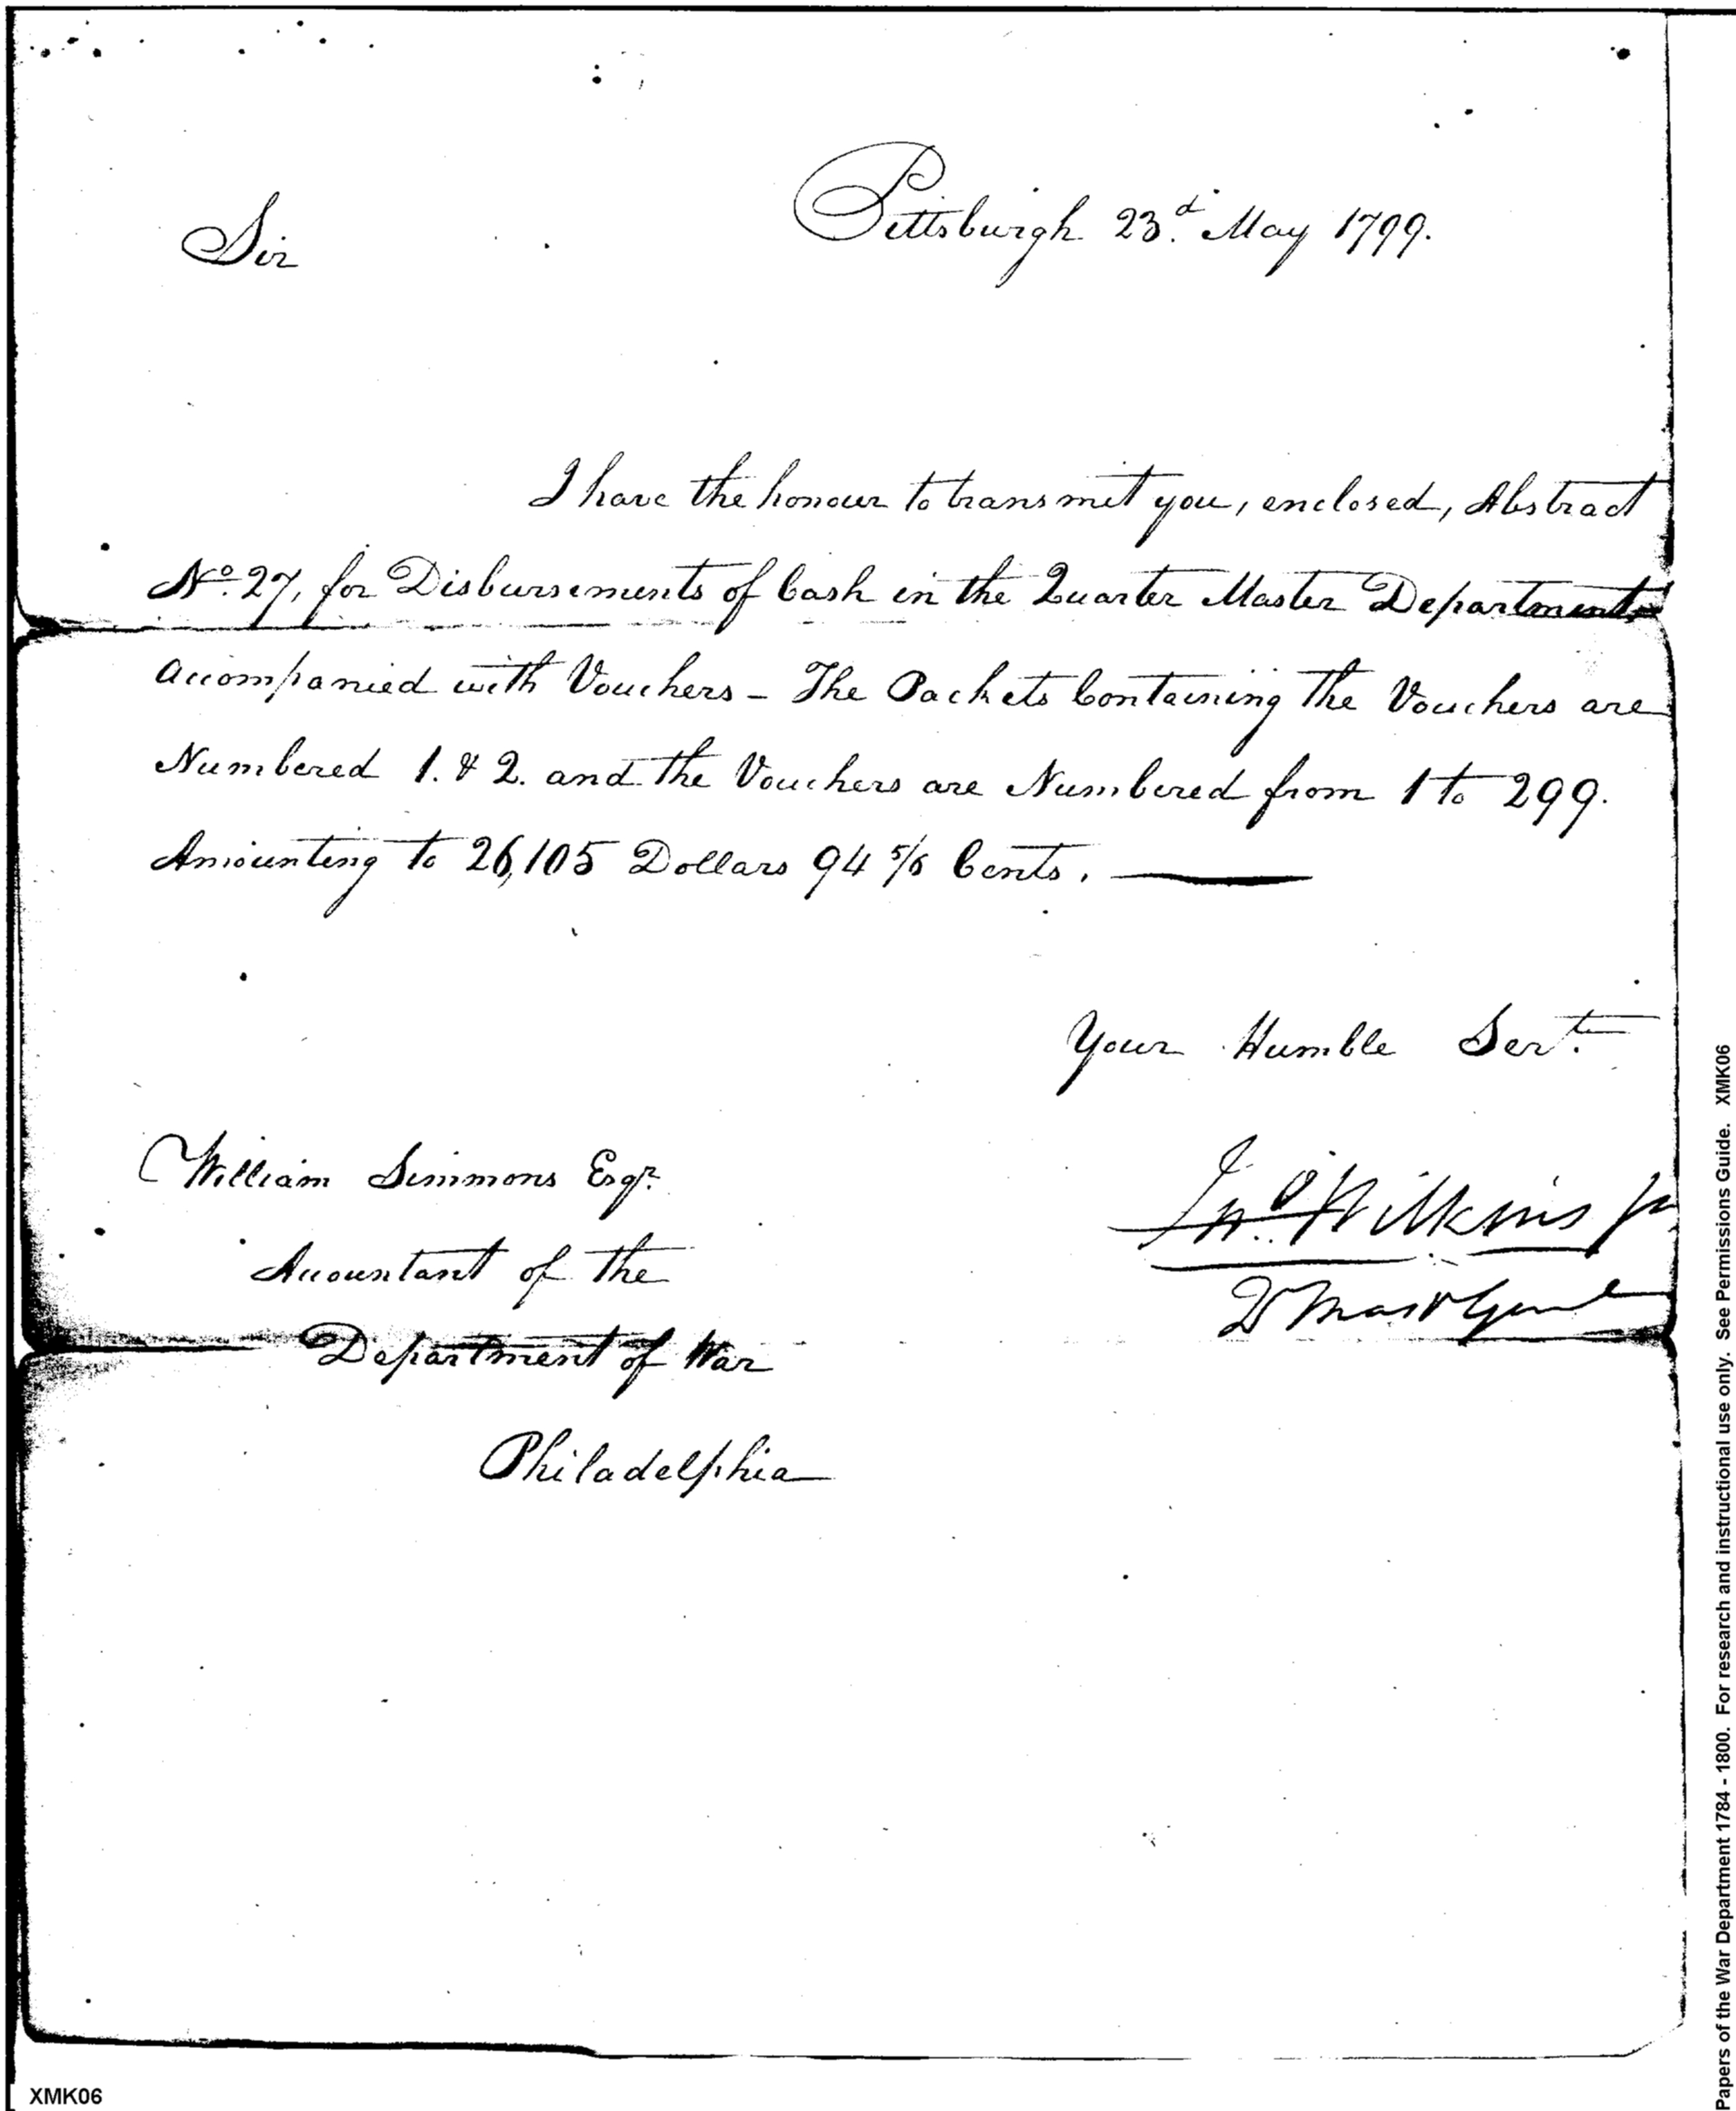 Pittsburgh 23.d May 1799.
Sir
I have the honour to transmit you, enclosed, Abstract
No. 27, for Disbursements of Cash in the Quarter Master Department
accompanied with Vouchers - The Packets Containing the Vouchers are
Numbered 1. & 2. and the Vouchers are Numbered from 1 to 299.
Amounting to 26,105 Dollars 94 5/6 Cents.
Your Humble Sert.
William Simmons Esqr.
Jno. Wilkins Jr
Accountant of the
Q Mastr Genl
Department of War
Philadelphia
XMK06
Papers of the War Department 1784 - 1800. For research and instructional use only. See Permissions Guide. XMK06